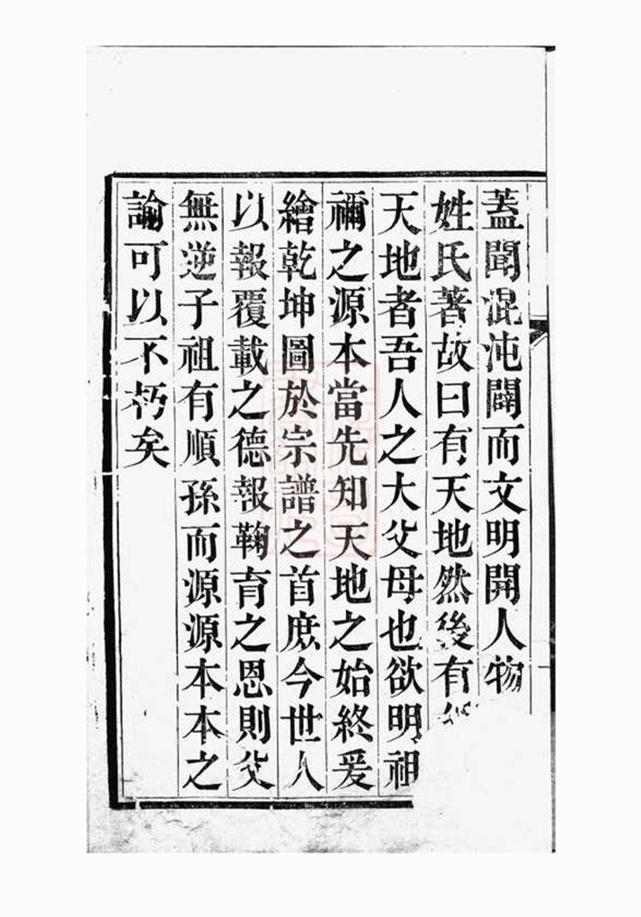 蓋聞混沌闢而文明開人物
姓氏著故曰有天地然後有
天地者吾人之大父母也欲明祖
禰之源本當先知天地之始終爰
繪乾坤圖於宗譜之首庶今世人
以報覆載之德報鞠育之恩則父
無逆子祖有順孫而源源本本之
論可以不朽矣